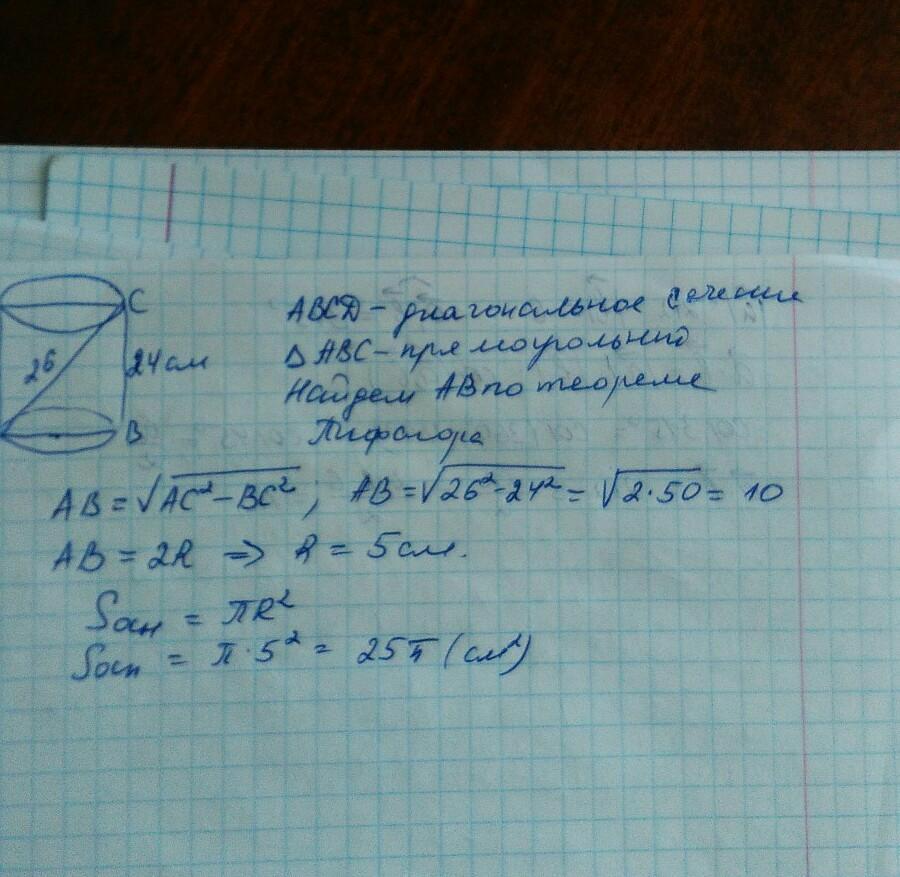 C
ABCD - диагональное сечение
26
24 см
Δ ABC - прямоугольный
Найдем AB по теореме
B
Пифагора
AB = √AC² - BC² ; AB = √26² - 24² = √2·50 = 10
AB = 2R ⇒ R = 5 см.
Sосн = πR²
Sосн = π·5² = 25π (см²)